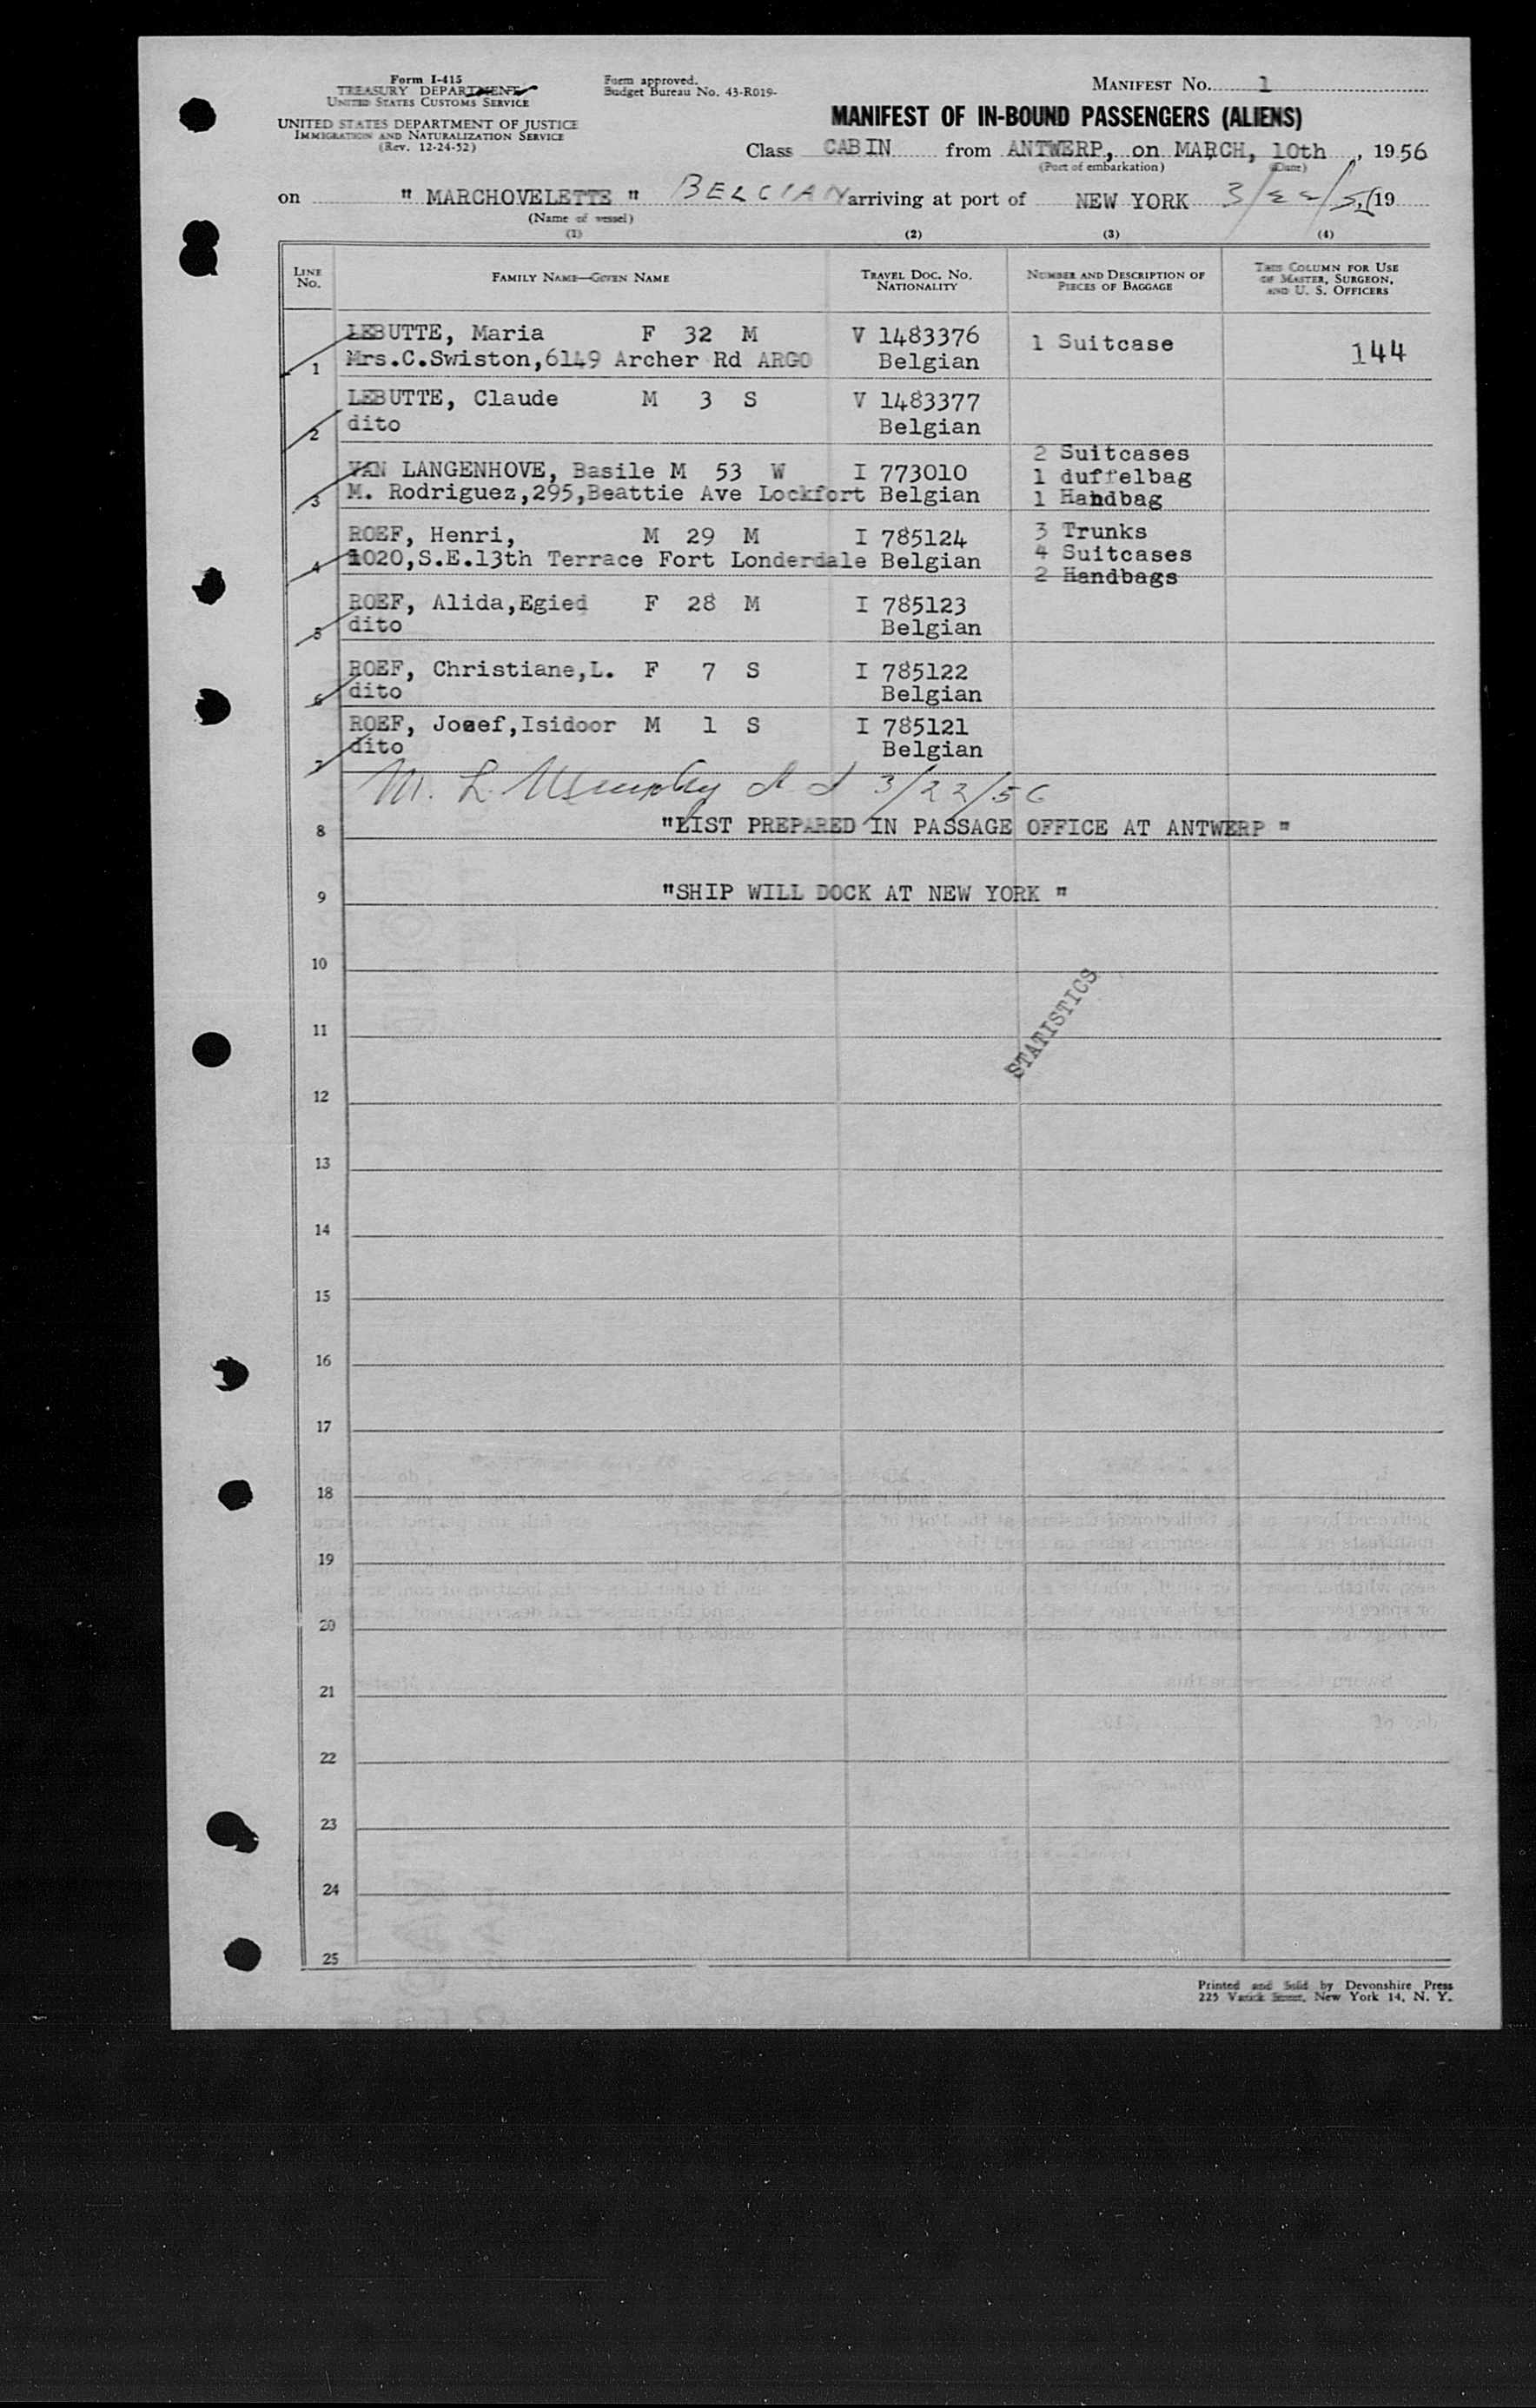 Form I-415
TREASURY DEPARTMENT
UNITED STATES CUSTOMS SERVICE
UNITED STATES DEPARTMENT OF JUSTICE
IMMIGRATION AND NATURALIZATION SERVICE
(Rev. 12-24-52)
Form approved.
Budget Bureau No. 43-R019-
MANIFEST NO. 1
MANIFEST OF IN-BOUND PASSENGERS (ALIENS)
Class CABIN from ANTWERP, on MARCH, 10th, 1956
(Port of embarkation) (Date)
on " MARCHOVELETTE " BELGIAN arriving at port of NEW YORK 3/22/56 19
(Name of vessel)
(1) (2) (3) (4)
LINE NO. FAMILY NAME—GIVEN NAME TRAVEL DOC. NO. NATIONALITY NUMBER AND DESCRIPTION OF PIECES OF BAGGAGE THIS COLUMN FOR USE OF MASTER, SURGEON, AND U. S. OFFICERS
LEBUTTE, Maria F 32 M V 1483376 1 Suitcase 144
1 Mrs.C.Swiston,6149 Archer Rd ARGO Belgian
LEBUTTE, Claude M 3 S V 1483377
2 dito Belgian
2 Suitcases
VAN LANGENHOVE, Basile M 53 W I 773010 1 duffelbag
3 M. Rodriguez,295,Beattie Ave Lockfort Belgian 1 Handbag
ROEF, Henri, M 29 M I 785124 3 Trunks
4 1020,S.E.13th Terrace Fort Londerdale Belgian 4 Suitcases
2 Handbags
ROEF, Alida,Egied F 28 M I 785123
5 dito Belgian
ROEF, Christiane,L. F 7 S I 785122
6 dito Belgian
ROEF, Josef,Isidoor M 1 S I 785121
7 dito Belgian
M. L. 3/22/56
8 "LIST PREPARED IN PASSAGE OFFICE AT ANTWERP "
9 "SHIP WILL DOCK AT NEW YORK "
10
STATISTICS
11
12
13
14
15
16
17
18
19
20
21
22
23
24
25
Printed and Sold by Devonshire Press
225 Varick Street, New York 14, N. Y.